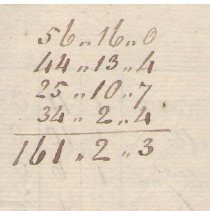 56 „ 16 „ 0
44 „ 13 „ 4
25 „ 10 „ 7
34 „ 2 „ 4
161 „ 2 „ 3